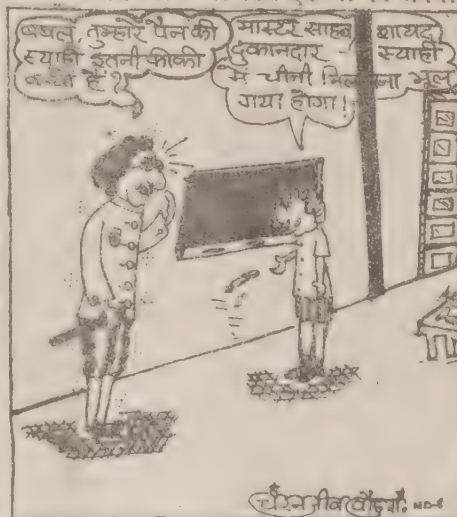 बबल, तुम्हारे पैन की
स्याही इतनी फीकी
क्यों है?
मास्टर साहब शायद
दुकानदार स्याही
में चीनी मिलाना भूल
गया होगा!
चिरनजीव ND-8